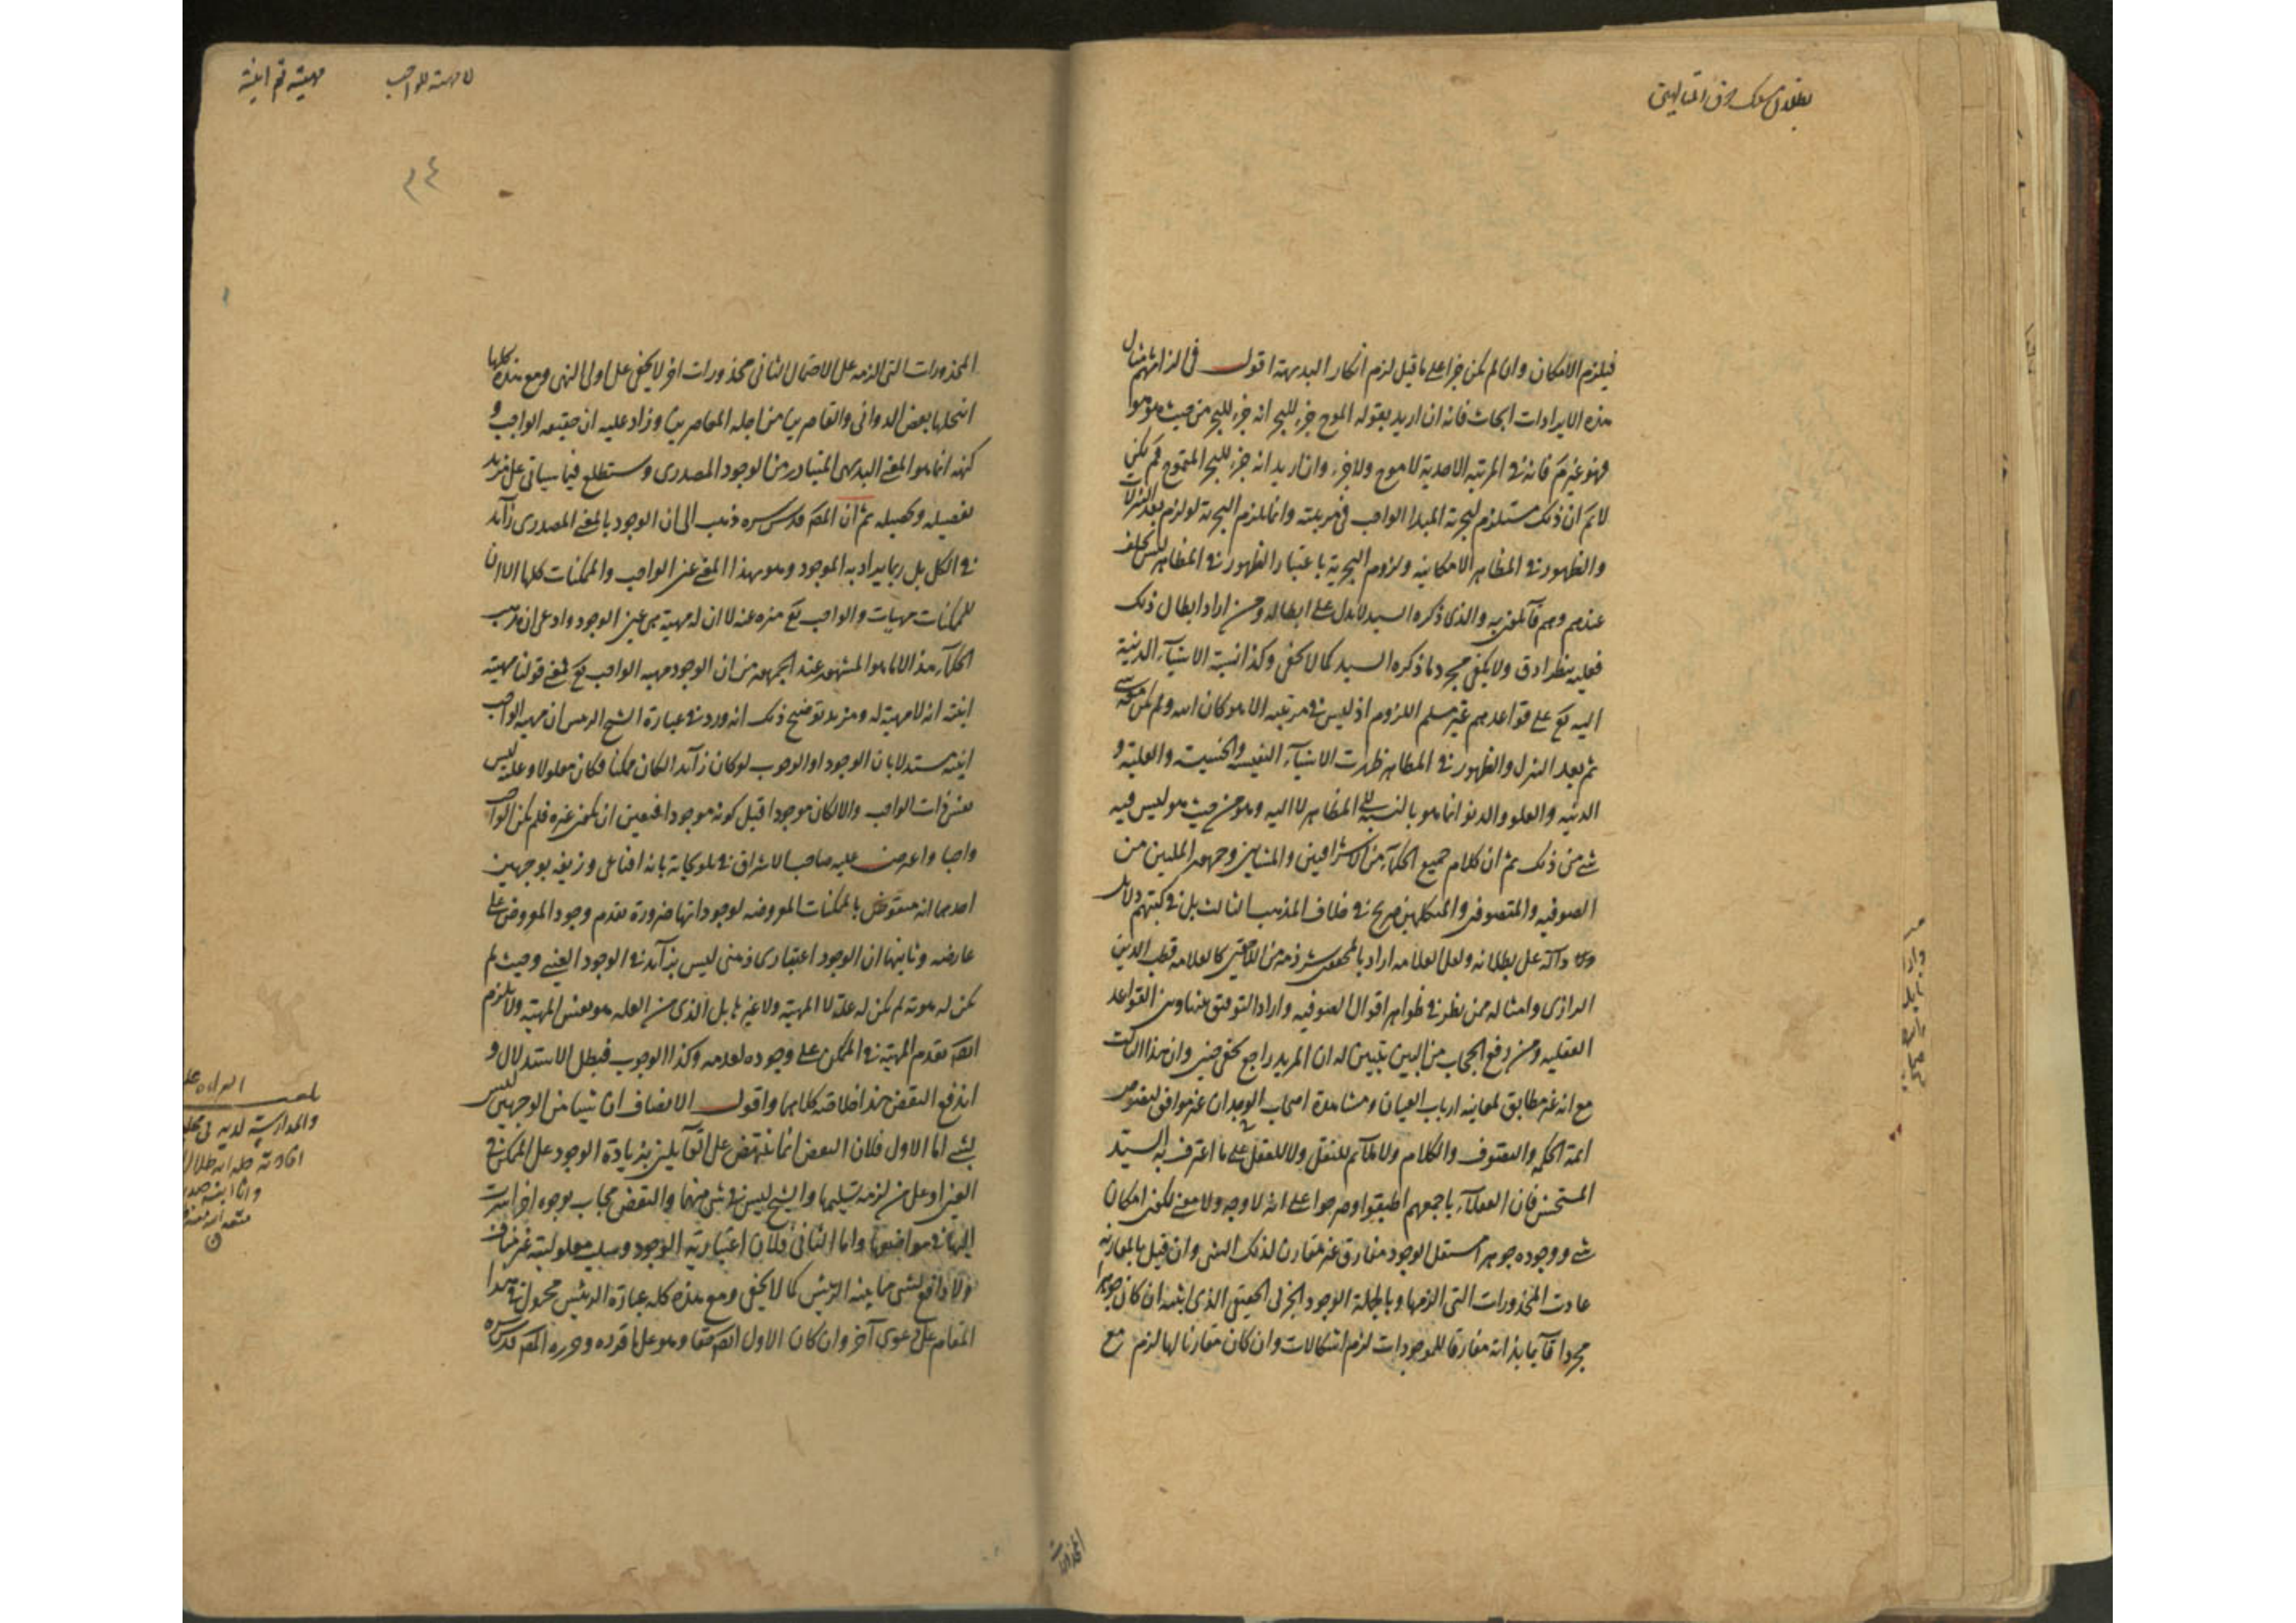 فيلزم الامكان وان لم يكن جزا على ما قيل لزم انكار البديهة اقول في الزامهم بمثال
هذه الايرادات ابحاث فانه ان اريد بقوله الموج جزء للبحر انه جزء للبحر من حيث هو هو
فهو غير تم فانه في المرتبة الاحدية لا موج ولا جزء وان اريد انه جزء للبحر المتموج فم لكن
لا تم ان ذلك مستلزم لتجزية المبدا الواجب في مرتبته وانما يلزم التجزية لو لزم بعد التنزلات
والظهور في المظاهر الامكانية ولزوم التجزية باعتبار الظهور في المظاهر ليس بخلف
عندهم وهم قائلون به والذي ذكره السيد لا يدل على ابطاله ومن اراد ابطال ذلك
فعليه بنظر ادق ولا يكفي مجرد ما ذكره السيد كما لا يخفى وكذا نسبة الاشياء الدنية
اليه تع على قواعدهم غير مسلم اللزوم اذ ليس في مرتبته الا هو كان الله ولم يكن معه شي
ثم بعد التنزل والظهور في المظاهر ظهرت الاشياء النفيسة والخسيسة والعلية و
الدنية والعلو والدنو انما هو بالنسبة الى المظاهر لا اليه وهو من حيث هو ليس فيه
شي من ذلك ثم ان كلام جميع الحكماء من الاشراقيين والمشائين وجمهور المليين من
الصوفيه والمتصوفه والمتكلمين صريح في خلاف المذهب الثالث بل في كتبهم دلائل
دالة على بطلانه ولعل العلامه اراد بالمحققين شرذمة من اللاحقين كالعلامه قطب الدين
الرازي وامثاله ممن نظر في ظواهر اقوال الصوفيه واراد التوفيق بينها وبين القواعد
العقليه ومن رفع الحجاب من البين تبين له ان المريد راجع بخفي حنين وان هذا ان كنت
مع انه غير مطابق لمعاينه ارباب العيان ومشاهدة اصحاب الوجدان غير موافق لنصوص
ائمة الحكمه والتصوف والكلام ولا ملائم للنقل ولا للعقل على ما اعترف به السيد
المستحسن فان العقلاء باجمعهم اطبقوا وصرحوا على انه لا وجه ولا معنى لكون امكان
شي ووجوده جوهرا مستقل الوجود مفارق غير مقارن لذلك الشي وان قيل بالمقارنة
عادت المحذورات التي الزمها وبالجملة الوجود الجزئي الحقيقي الذي اثبته ان كان جوهرا
مجردا قائما بذاته مفارقا للموجودات لزم اشكالات وان كان مقارنا لها لزم مع
المحذورات
لا مهية للواجب
٢٤
المحذورات التي الزمه على الاحتمال الثاني محذورات اخر لا يخفى على اولي النهى ومع هذه كلها
انتحلها بعض الدواني والقاصرين من اجله المعاصرين وزاد عليه ان حقيقه الواجب و
كنهه انما هو المعنى البديهي المتبادر من الوجود المصدري وستطلع فيما سياتي على مزيد
تفصيله وتحصيله ثم ان المص قدس سره ذهب الى ان الوجود بالمعنى المصدري زائد
في الكل بل ربما يراد به الموجود وهو بهذا المعنى عين الواجب والممكنات كلها الا ان
للممكنات مهيات والواجب تع منزه عنه لا ان له مهية هي عين الوجود وادعى ان مذهب
الحكماء هذا لا ما هو المشهور عند الجمهور من ان الوجود مهيه الواجب تع فمعنى قولنا مهيته
انيته انه لا مهية له ومزيد توضيح ذلك انه ورد في عبارة الشيخ الرئيس ان مهية الواجب
انيته مستدلا بان الوجود او الوجوب لو كان زائدا لكان ممكنا فكان معلولا وعلته ليس
نفس ذات الواجب والا لكان موجودا قبل كونه موجودا فتعين ان يكون غيره فلم يكن الواجب
واجبا واعترض عليه صاحب الاشراق في تلويحاته بانه اقناعي وزيفه بوجهين
احدهما انه منقوض بالممكنات المعروضه لوجوداتها ضرورة تقدم وجود المعروض على
عارضه وثانيهما ان الوجود اعتباري ذهني ليس بزائد في الوجود العيني وحيث لم
يكن له هوية لم يكن له علة لا المهية ولا غيرها بل الذي من العله هو نفس المهية ولا يلزم
ايضا تقدم المهية في الممكن على وجوده لعدمه وكذا الوجوب فبطل الاستدلال و
اندفع النقض هذا خلاصة كلامهما واقول الانصاف ان شيئا من الوجهين ليس
بشي اما الاول فلان النقض انما ينتهض على القائلين بزيادة الوجود على الممكن في
العين او على من لزمه تسليمها والشيخ ليس في شي منهما والنقض مجاب بوجوه اخر اشيرت
اليها في مواضعها واما الثاني فلان اعتبارية الوجود وسلب معلوليته غير مناف
ولا دافع لشي مما بينه الرئيس كما لا يخفى ومع هذه كله عبارة الرئيس محمول في هذا
المقام على دعوى آخر وان كان الاول ايضا حقا وهو على ما قرره وحرره المص قدس سره